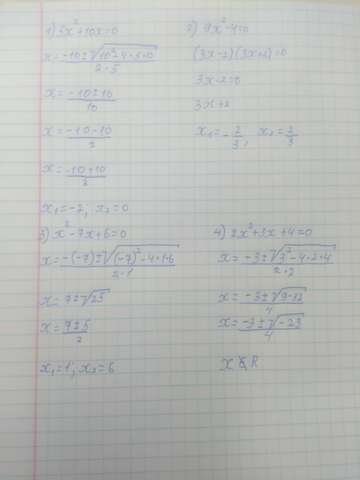 1) 5x²+10x=0
x=-10±√10²-4·5·0
2·5
x=-10±10
10
x=-10-10
2
x=-10+10
2
x₁=-2; x₂=0
2) 9x²-4=0
(3x-2)(3x+2)=0
3x-2=0
3x+2
x₁=-2/3; x₂=2/3
3) x²-7x+6=0
x=-(-7)±√(-7)²-4·1·6
2·1
x=7±√25
x=7±5
2
x₁=1; x₂=6
4) 2x²+3x+4=0
x=-3±√3²-4·2·4
2·2
x=-3±√9-32
4
x=-3±√-23
4
x∉R